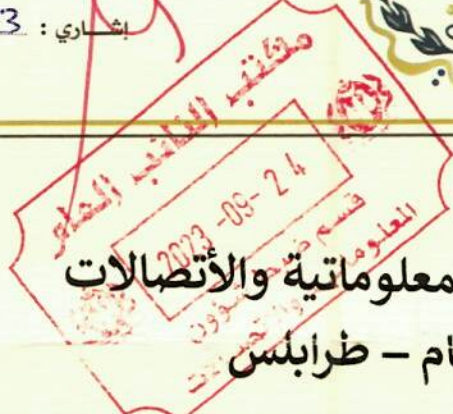 إشاري : 3
مكتب النائب العام
2023 -09- 2 4
قسم
المعلومات
معلوماتية والأتصالات
ام – طرابلس